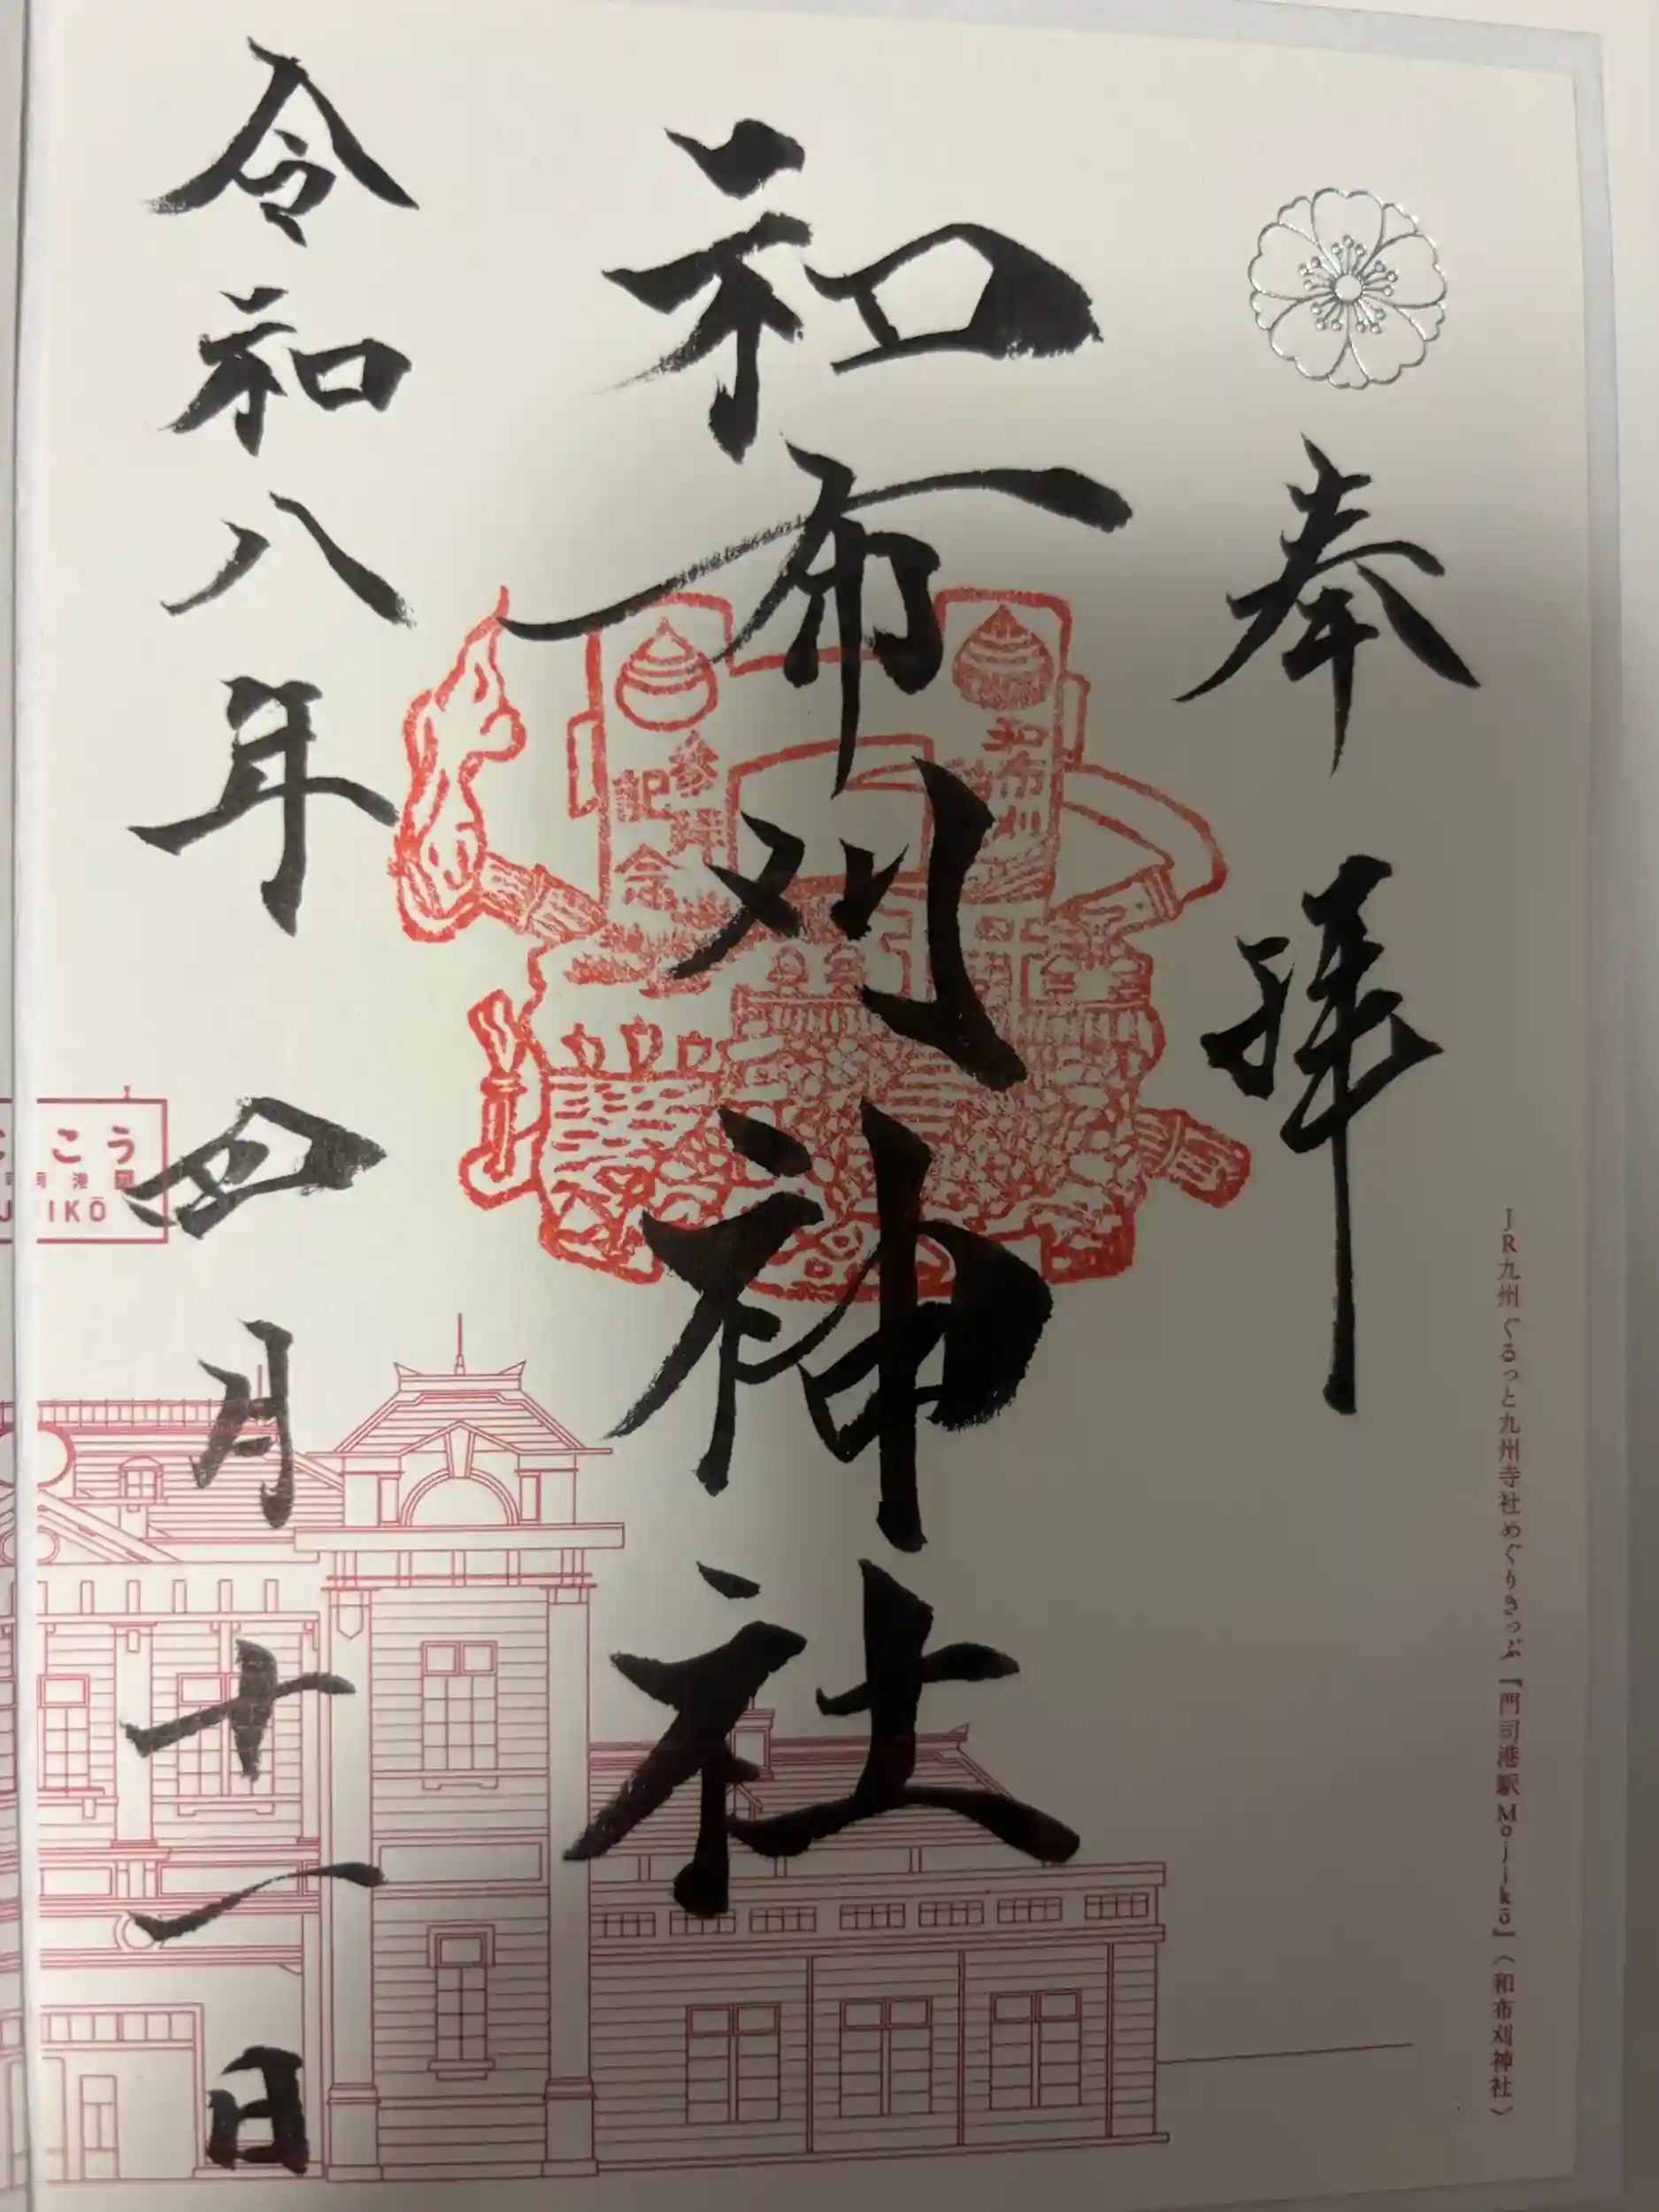 奉拝
和布刈神社
令和八年四月十一日
JR九州 ぐるっと九州寺社めぐりきっぷ『門司港駅 Mojikō』〈和布刈神社〉
和布刈
参拝
記念
こう
司港
IKŌ